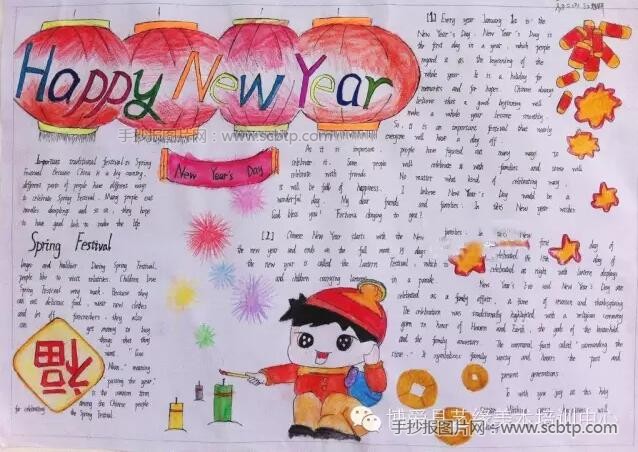 Happy New Year
手抄报图片网：www.scbtp.com
[1] Every year January 1s is the
New Year's Day. New Year's Day is
the first day in a year, which people
regard it as the beginning of the
whole year. It is a holiday for
memories and for hopes. Chinese always
believe that a good beginning will
make a whole year become smoothly.
So, it is an important festival that nearly
everyone will have a day off.
As it is important, people have figured out many ways to
celebrate it. Some people will celebrate it with families and some will
celebrate with friends. No matter what kind of celebrating way,
it will be full of happiness. I believe New Year's Day would be a
wonderful day. My dear friends and families. In this New year wishes
God bless you! Fortune clinging to you!
New Year's Day
Important traditional festival is Spring
Festival. Because China is a big country,
different parts of people have different ways
to celebrate Spring Festival. Many people eat
noodles dumplings and so on, they hope
to have good luck to make the life
Spring Festival
longer and healthier. During Spring Festival,
people like to visit relatives. Children love
Spring Festival very much. Because they
can eat delicious food, wear new clothes
and let off firecrackers, they also
can get money to buy
things that they
want. "Live
Nian," meaning
passing the year,
is the common term
among the Chinese people
for celebrating the Spring Festival.
福
[2] Chinese New Year starts with the New
the new year and ends on the full moon 15 days
the new year is called the Lantern Festival, which is celebrated at night with lantern displays
and children carrying lanterns in a parade.
New Year's Eve and New Year's Day are
celebrated as a family affair, a time of reunion and thanksgiving
The celebration was traditionally highlighted with a religious ceremony
given in honor of Heaven and Earth, the gods of the household
and the family ancestors. The communal feast called "surrounding the
stove". It symbolizes family unity and honors the past and
present generations.
To wish you joy at this holy
博爱县艺缘美术培训中心
手抄报图片网：www.scbtp.com